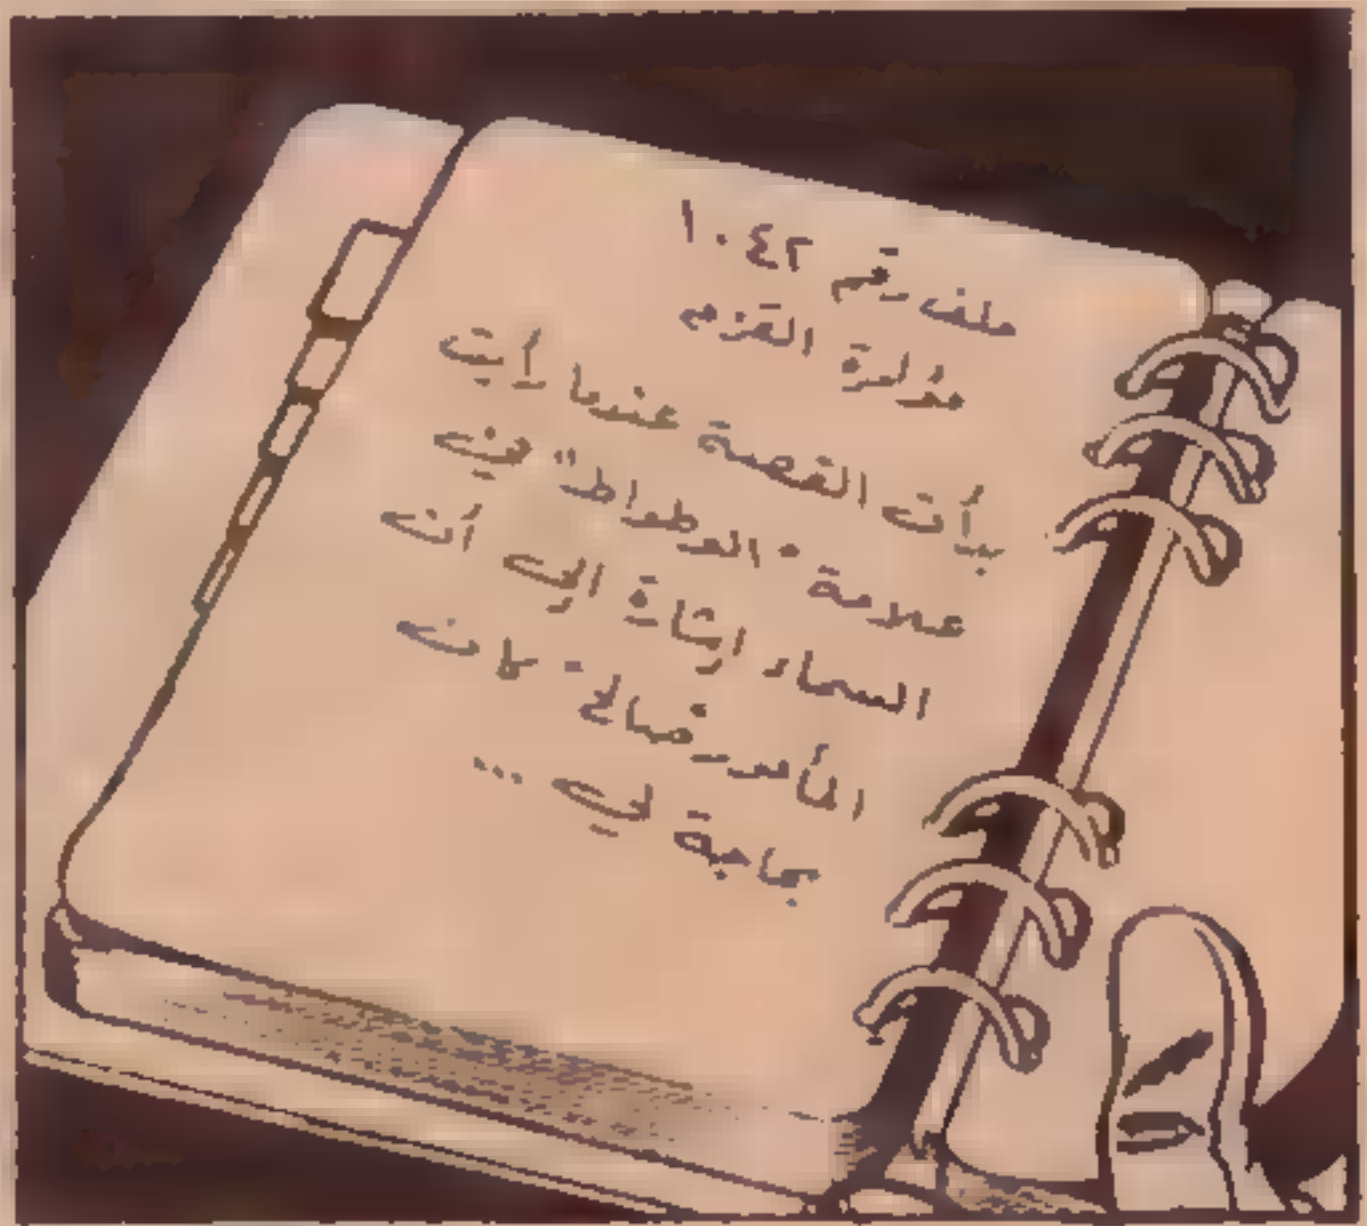 ملف رقم ١٠٤٢
مؤامرة القزم
بدأت القصة عندما رأيت
علامة "الوطواط" في
السماء إشارة إلى أن
المأمور صالح كان
بحاجة لي ...